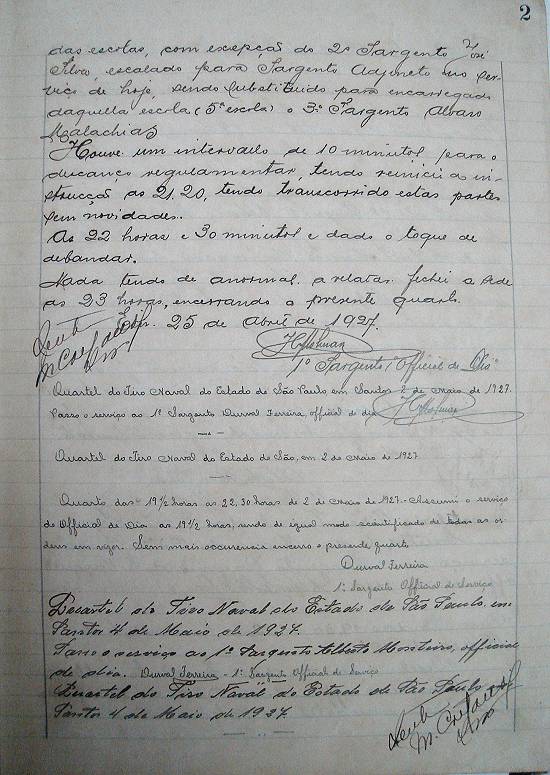 2
das escolas, com excepção do 2º Sargento José
Silva, escalado para Sargento Adjuncto no ser-
viço de hoje, sendo substituido para encarregado
daquella escola (5ª escola) o 3º Sargento Alvaro
Malachias
Houve um intervallo de 10 minutos para o
descanço regulamentar, tendo reinicio a in-
strucção as 21,20, tendo transcorrido estas partes
sem novidades.
As 22 horas e 30 minutos e dado o toque de
debandar.
Nada tendo de anormal a relatar fechei a sede
as 23 horas, encerrando o presente quarto.
Em 25 de Abril de 1927.
1º Sargento "Official de Dia"
Quartel do Tiro Naval do Estado de São Paulo em Santos 2 de Maio de 1927.
Passo o serviço ao 1º Sargento Durval Ferreira, official de dia
Quartel do Tiro Naval do Estado de São, em 2 de Maio de 1927
Quarto das 19½ horas as 22,30 horas de 2 de Maio de 1927.- Assumi o serviço
de Official de Dia as 19½ horas, sendo de igual modo scientificado de todas as or
dens em vigor. Sem mais occurencia encerro o presente quarto
Durval Ferreira
1º Sargento Official de Serviço
Quartel do Tiro Naval do Estado de São Paulo, em
Santos 4 de Maio de 1927.
Passo o serviço ao 1º Sargento Alberto Monteiro, official
de dia. Durval Ferreira - 1º Sargento Official de Serviço
Quartel do Tiro Naval do Estado de São Paulo
Santos 4 de Maio de 1927.